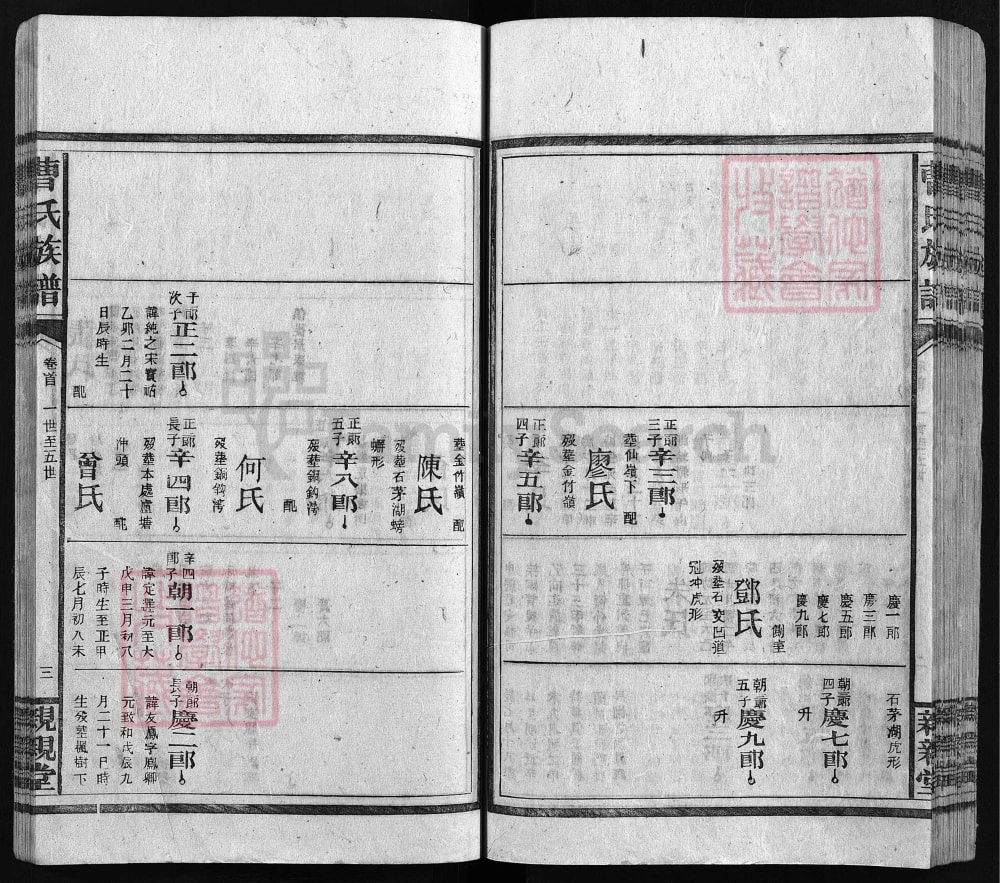 曹氏族譜
石茅湖虎形
慶一郎
慶三郎
慶五郎
慶七郎
慶九郎
朝一郎
四子慶七郎
升
側室
鄧氏
殁葬石窔凹道
冠坤虎形
朝一郎
五子慶九郎
升
正一郎
三子辛三郎
葬仙嶺下 配
廖氏
殁葬金竹嶺
正一郎
四子辛五郎
親親堂
葬金竹嶺 配
陳氏
殁葬石茅湖螃
蠏形
正一郎
五子辛八郎
殁葬銅鈎灣
配
何氏
殁葬銅鈎灣
于一郎
次子正二郎
諱純之宋寶祐
乙卯二月二十
日辰時生
配
正二郎
長子辛四郎
殁葬本處廬塘
冲頭
配
曾氏
辛四
郎子朝一郎
諱定選元至大
戊申三月初八
子時生至正甲
辰七月初八未
朝一郎
長子慶二郎
諱友鳳字鳳卿
元致和戊辰九
月二十一日時
生殁葬楓樹下
曹氏族譜
卷首
一世至五世
三
親親堂
FamilySearch